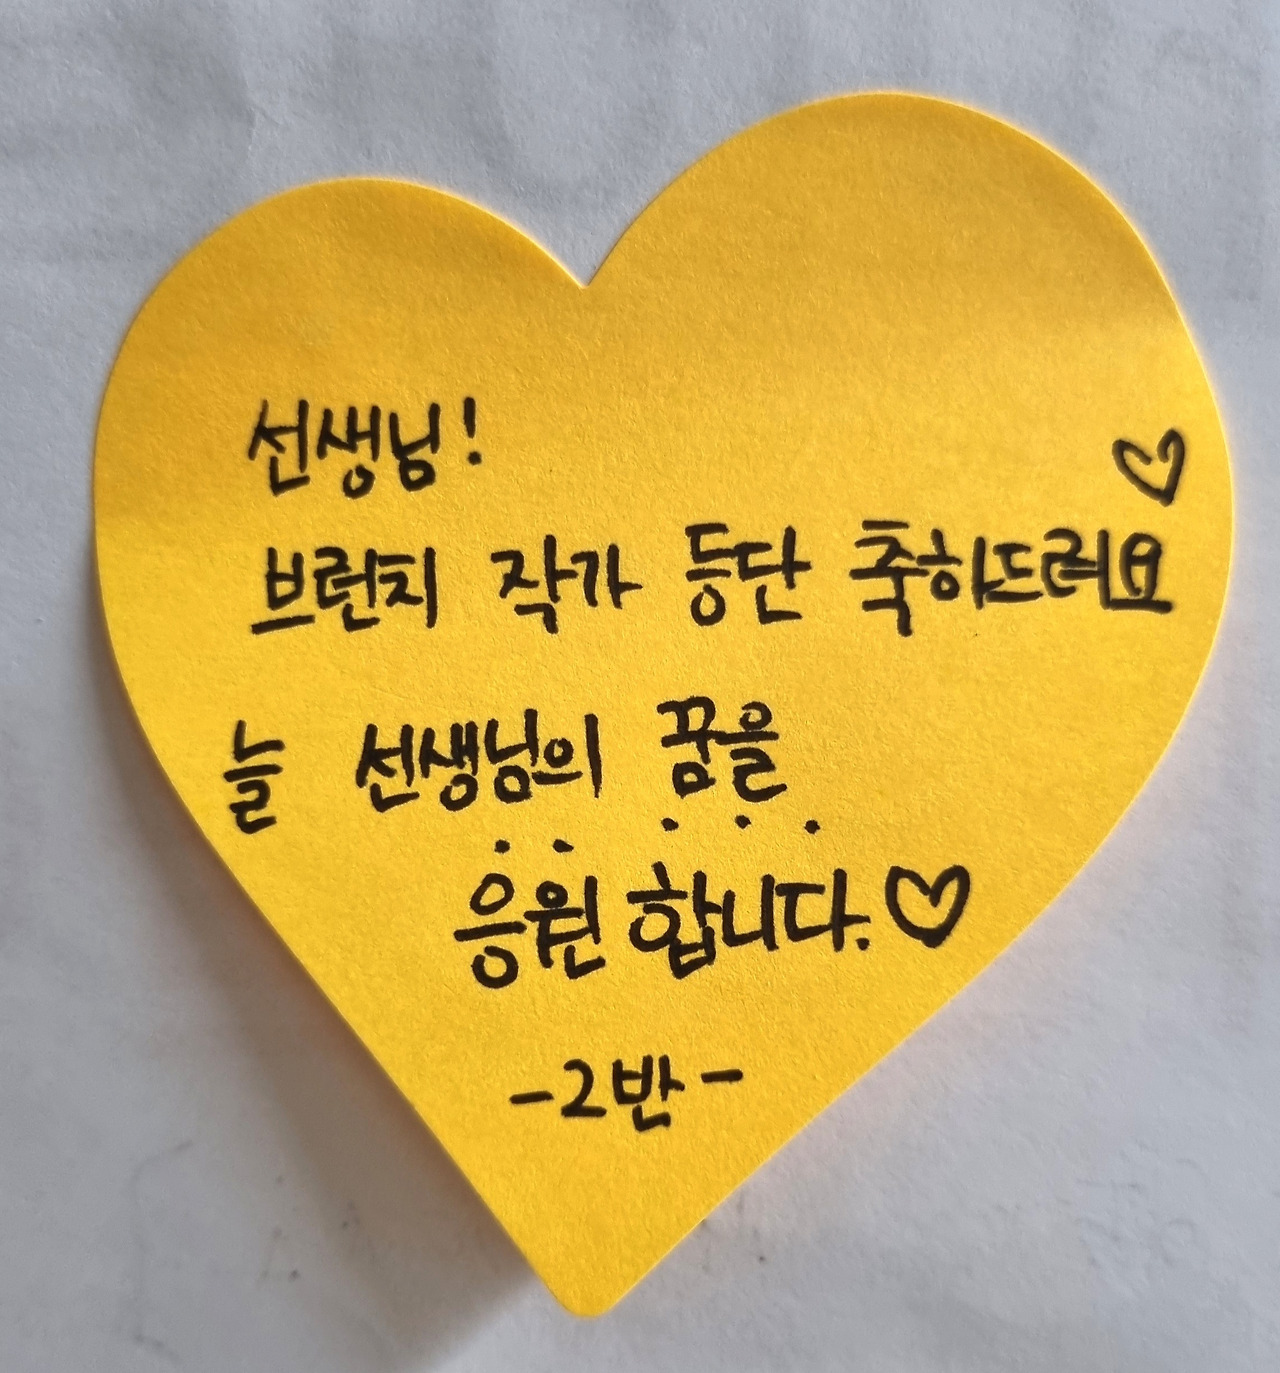 선생님!
브런치 작가 등단 축하드려요♡
늘 선생님의 꿈을
응원합니다.♡
-2반-